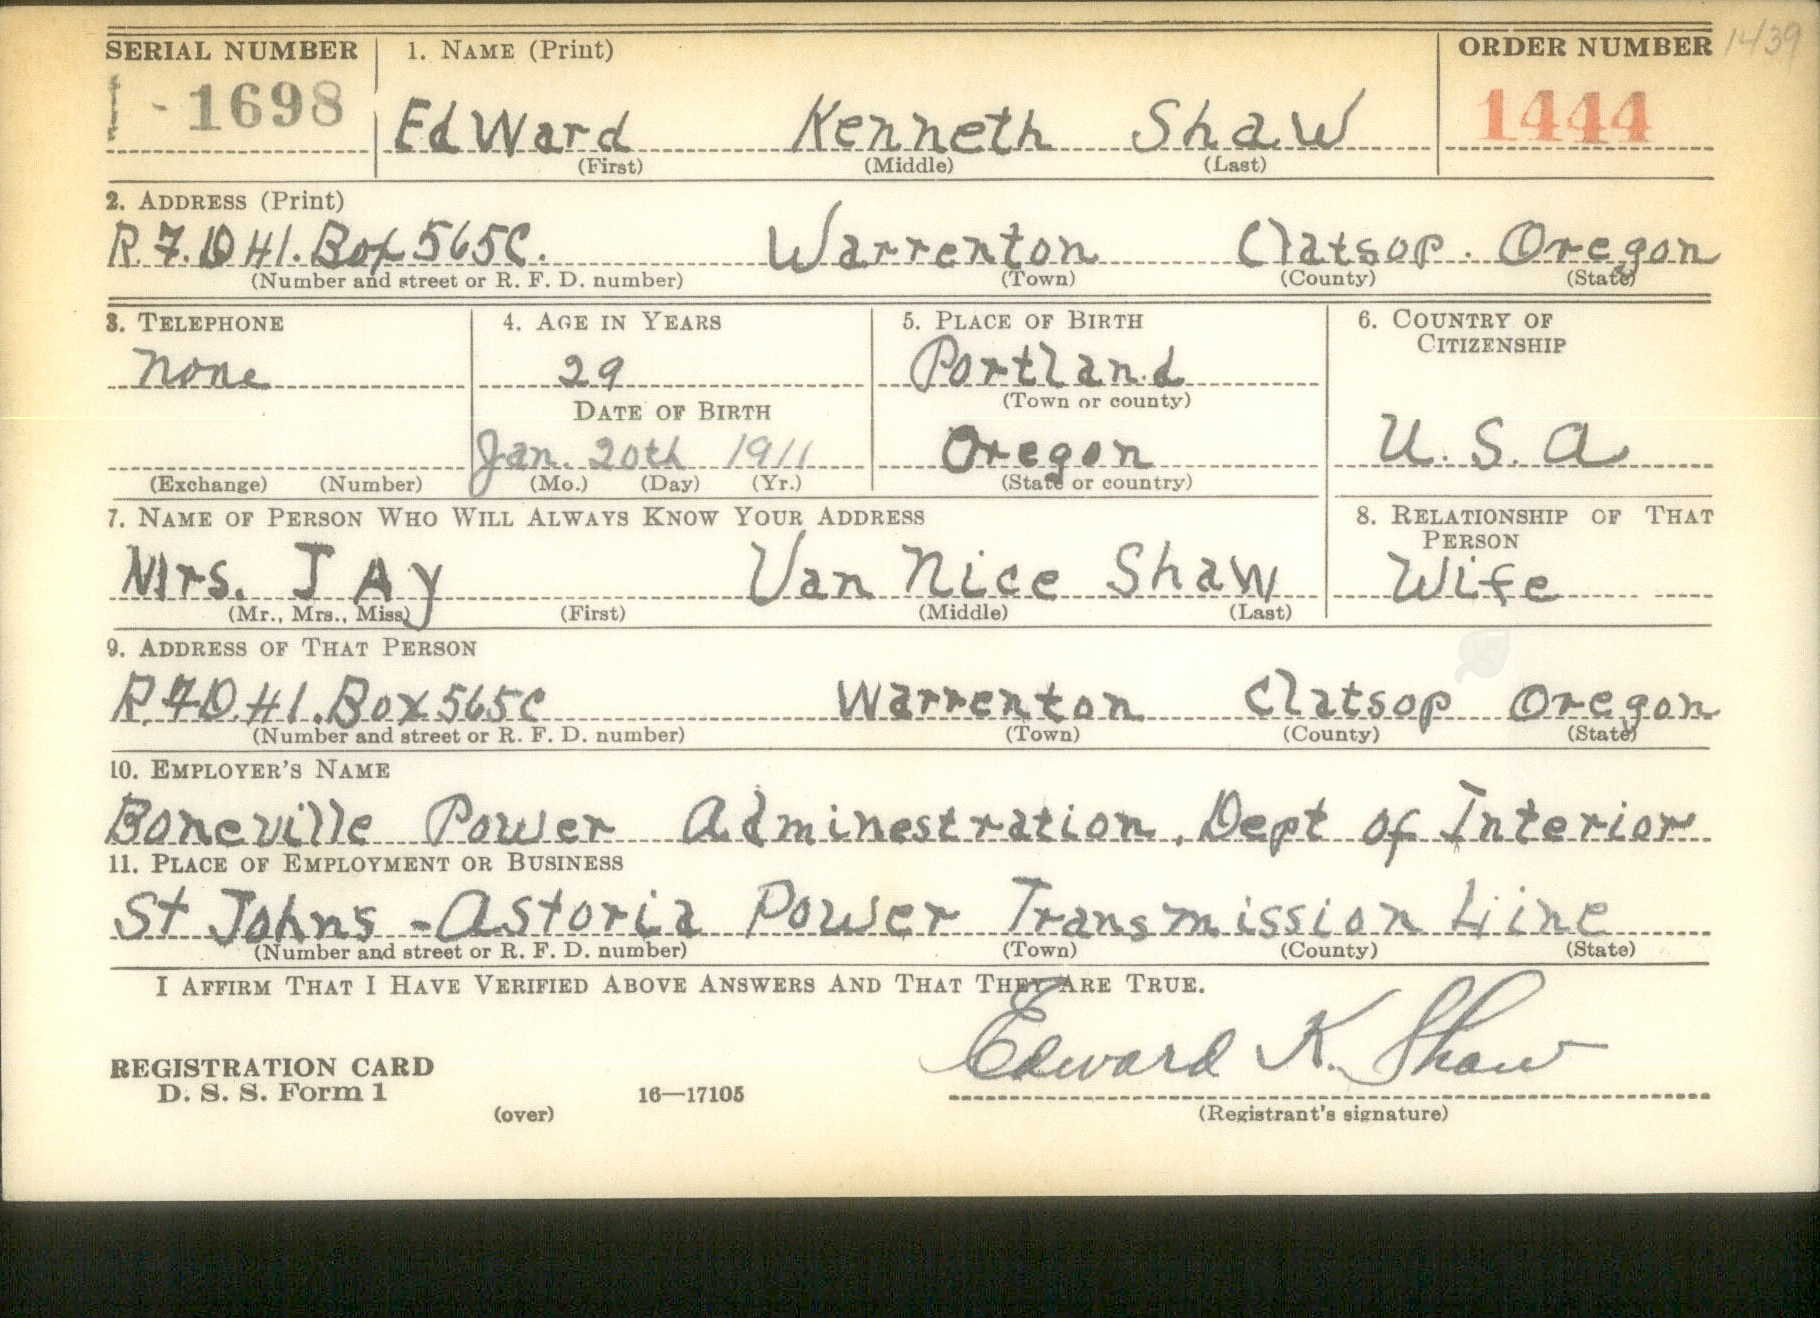 SERIAL NUMBER 1. NAME (Print) ORDER NUMBER 1439
1698 EdWard Kenneth Shaw 1444
(First) (Middle) (Last)
2. ADDRESS (Print)
R.F.D #1. Box 565C. Warrenton Clatsop. Oregon
(Number and street or R. F. D. number) (Town) (County) (State)
3. TELEPHONE 4. AGE IN YEARS 5. PLACE OF BIRTH 6. COUNTRY OF
CITIZENSHIP
None 29 Portland
(Town or county)
DATE OF BIRTH
Jan. 20th 1911 Oregon U.S.A
(Exchange) (Number) (Mo.) (Day) (Yr.) (State or country)
7. NAME OF PERSON WHO WILL ALWAYS KNOW YOUR ADDRESS 8. RELATIONSHIP OF THAT
PERSON
Mrs. JAy Van Nice Shaw Wife
(Mr., Mrs., Miss) (First) (Middle) (Last)
9. ADDRESS OF THAT PERSON
R.F.D. #1. Box 565C Warrenton Clatsop Oregon
(Number and street or R. F. D. number) (Town) (County) (State)
10. EMPLOYER'S NAME
Boneville Power Adminestration. Dept of Interior
11. PLACE OF EMPLOYMENT OR BUSINESS
St Johns - Astoria Power Transmission Line
(Number and street or R. F. D. number) (Town) (County) (State)
I AFFIRM THAT I HAVE VERIFIED ABOVE ANSWERS AND THAT THEY ARE TRUE.
Edward K. Shaw
REGISTRATION CARD
D. S. S. Form 1 16—17105
(over) (Registrant's signature)